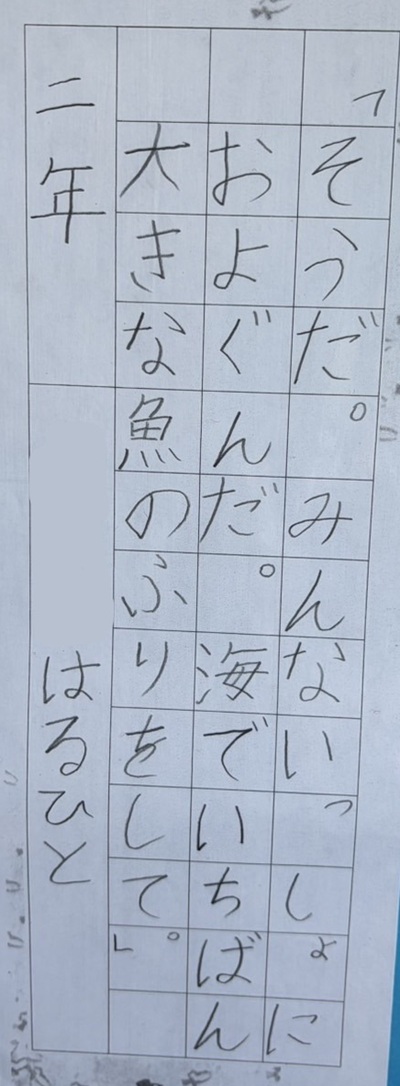 「そうだ。みんないっしょに
およぐんだ。海でいちばん
大きな魚のふりをして。」
二年 はるひと